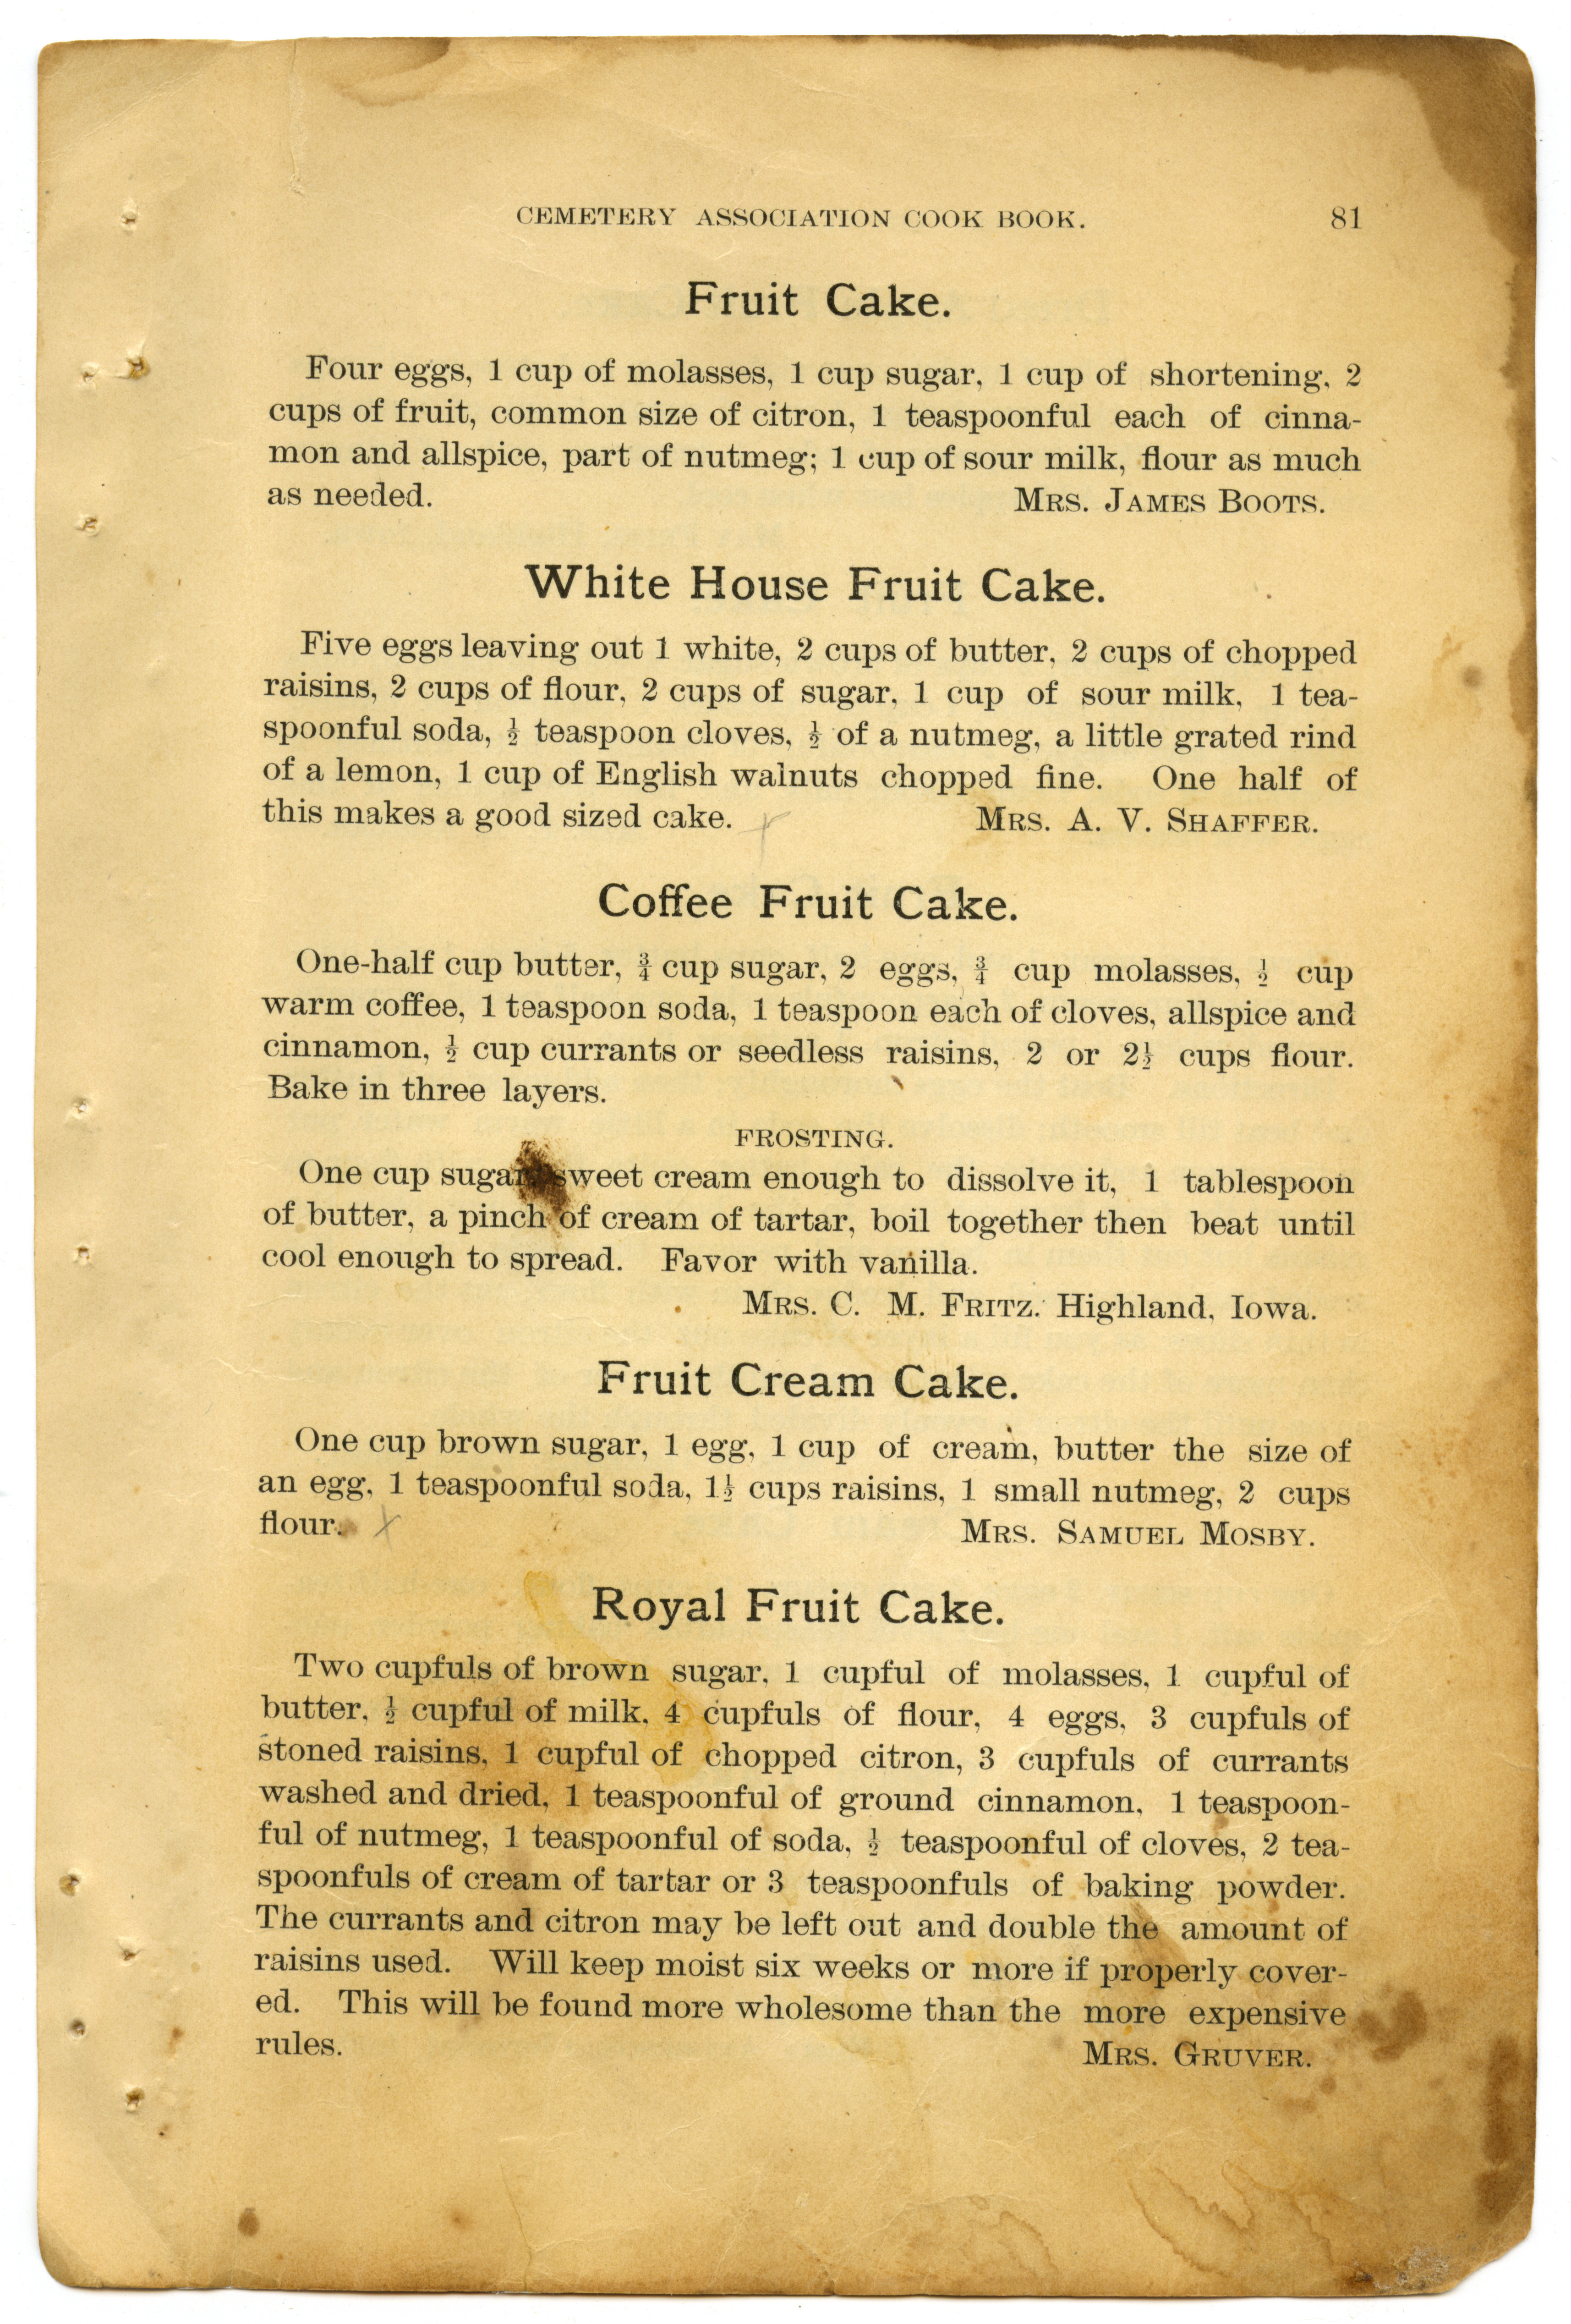 CEMETERY ASSOCIATION COOK BOOK. 81
Fruit Cake.
Four eggs, 1 cup of molasses, 1 cup sugar, 1 cup of shortening, 2
cups of fruit, common size of citron, 1 teaspoonful each of cinna-
mon and allspice, part of nutmeg; 1 cup of sour milk, flour as much
as needed. MRS. JAMES BOOTS.
White House Fruit Cake.
Five eggs leaving out 1 white, 2 cups of butter, 2 cups of chopped
raisins, 2 cups of flour, 2 cups of sugar, 1 cup of sour milk, 1 tea-
spoonful soda, ½ teaspoon cloves, ½ of a nutmeg, a little grated rind
of a lemon, 1 cup of English walnuts chopped fine. One half of
this makes a good sized cake. MRS. A. V. SHAFFER.
Coffee Fruit Cake.
One-half cup butter, ¾ cup sugar, 2 eggs, ¾ cup molasses, ½ cup
warm coffee, 1 teaspoon soda, 1 teaspoon each of cloves, allspice and
cinnamon, ½ cup currants or seedless raisins, 2 or 2½ cups flour.
Bake in three layers.
FROSTING.
One cup sugar, sweet cream enough to dissolve it, 1 tablespoon
of butter, a pinch of cream of tartar, boil together then beat until
cool enough to spread. Favor with vanilla.
MRS. C. M. FRITZ. Highland, Iowa.
Fruit Cream Cake.
One cup brown sugar, 1 egg, 1 cup of cream, butter the size of
an egg, 1 teaspoonful soda, 1½ cups raisins, 1 small nutmeg, 2 cups
flour. X MRS. SAMUEL MOSBY.
Royal Fruit Cake.
Two cupfuls of brown sugar, 1 cupful of molasses, 1 cupful of
butter, ½ cupful of milk, 4 cupfuls of flour, 4 eggs, 3 cupfuls of
stoned raisins, 1 cupful of chopped citron, 3 cupfuls of currants
washed and dried, 1 teaspoonful of ground cinnamon, 1 teaspoon-
ful of nutmeg, 1 teaspoonful of soda, ½ teaspoonful of cloves, 2 tea-
spoonfuls of cream of tartar or 3 teaspoonfuls of baking powder.
The currants and citron may be left out and double the amount of
raisins used. Will keep moist six weeks or more if properly cover-
ed. This will be found more wholesome than the more expensive
rules. MRS. GRUVER.